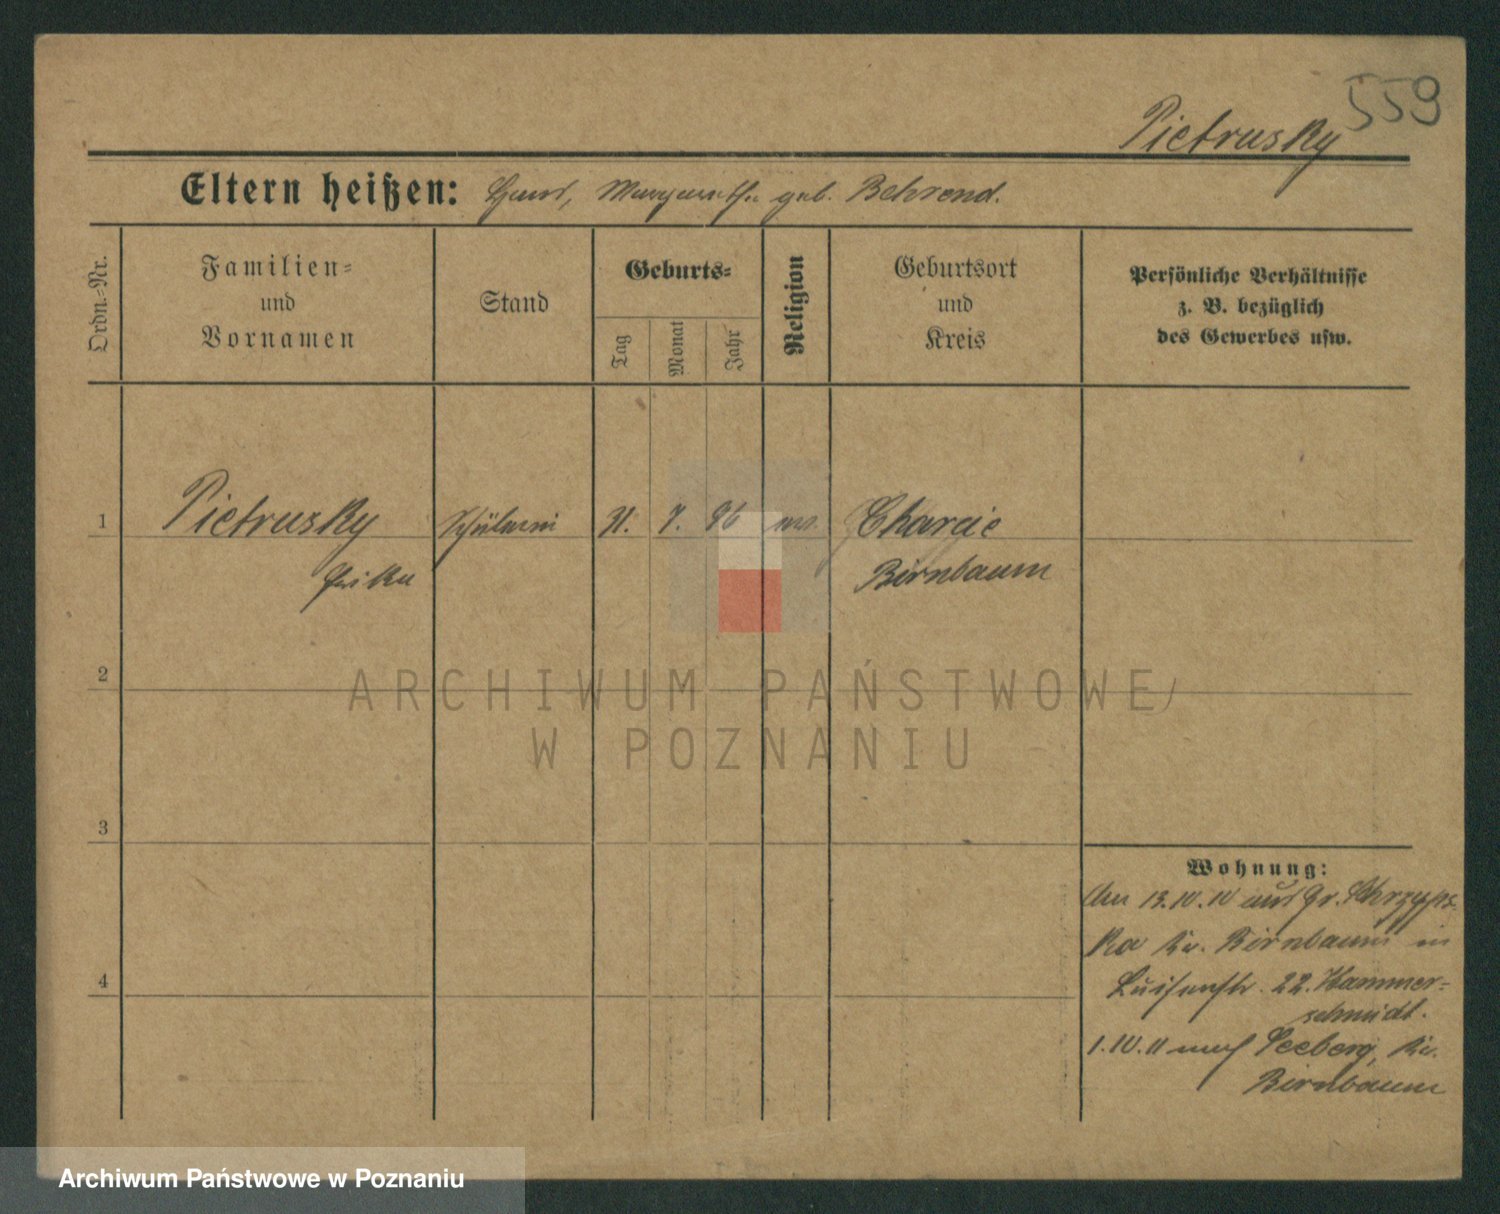 559
Pietrusky
Eltern heißen: Hans, Margarethe geb. Behrend.
Ordn.-Nr.
Familien-
und
Vornamen
Stand
Geburts-
Tag
Monat
Jahr
Religion
Geburtsort
und
Kreis
Persönliche Verhältnisse
z. B. bezüglich
des Gewerbes usw.
1 Pietrusky Schülerin 31. 7. 96 ev. Charcic
Erika Birnbaum
2
ARCHIWUM PAŃSTWOWE
W POZNANIU
3
4
Wohnung:
Am 13.10.10 aus Gr. Chrzyps-
ko Kr. Birnbaum in
Luisenstr. 22. Hammer-
schmidt.
1.10.11 nach Seeberg, Kr.
Birnbaum
Archiwum Państwowe w Poznaniu